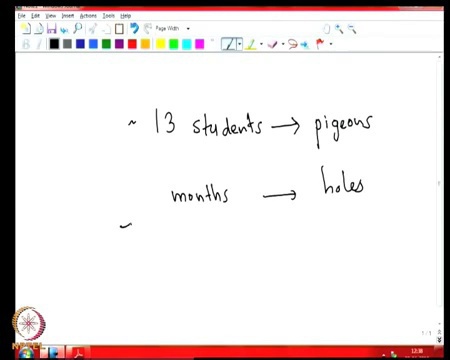 File Edit View Insert Actions Tools Help
Page Width
~ 13 students → pigeons
months → holes
~
1/1
NPTEL
12:38